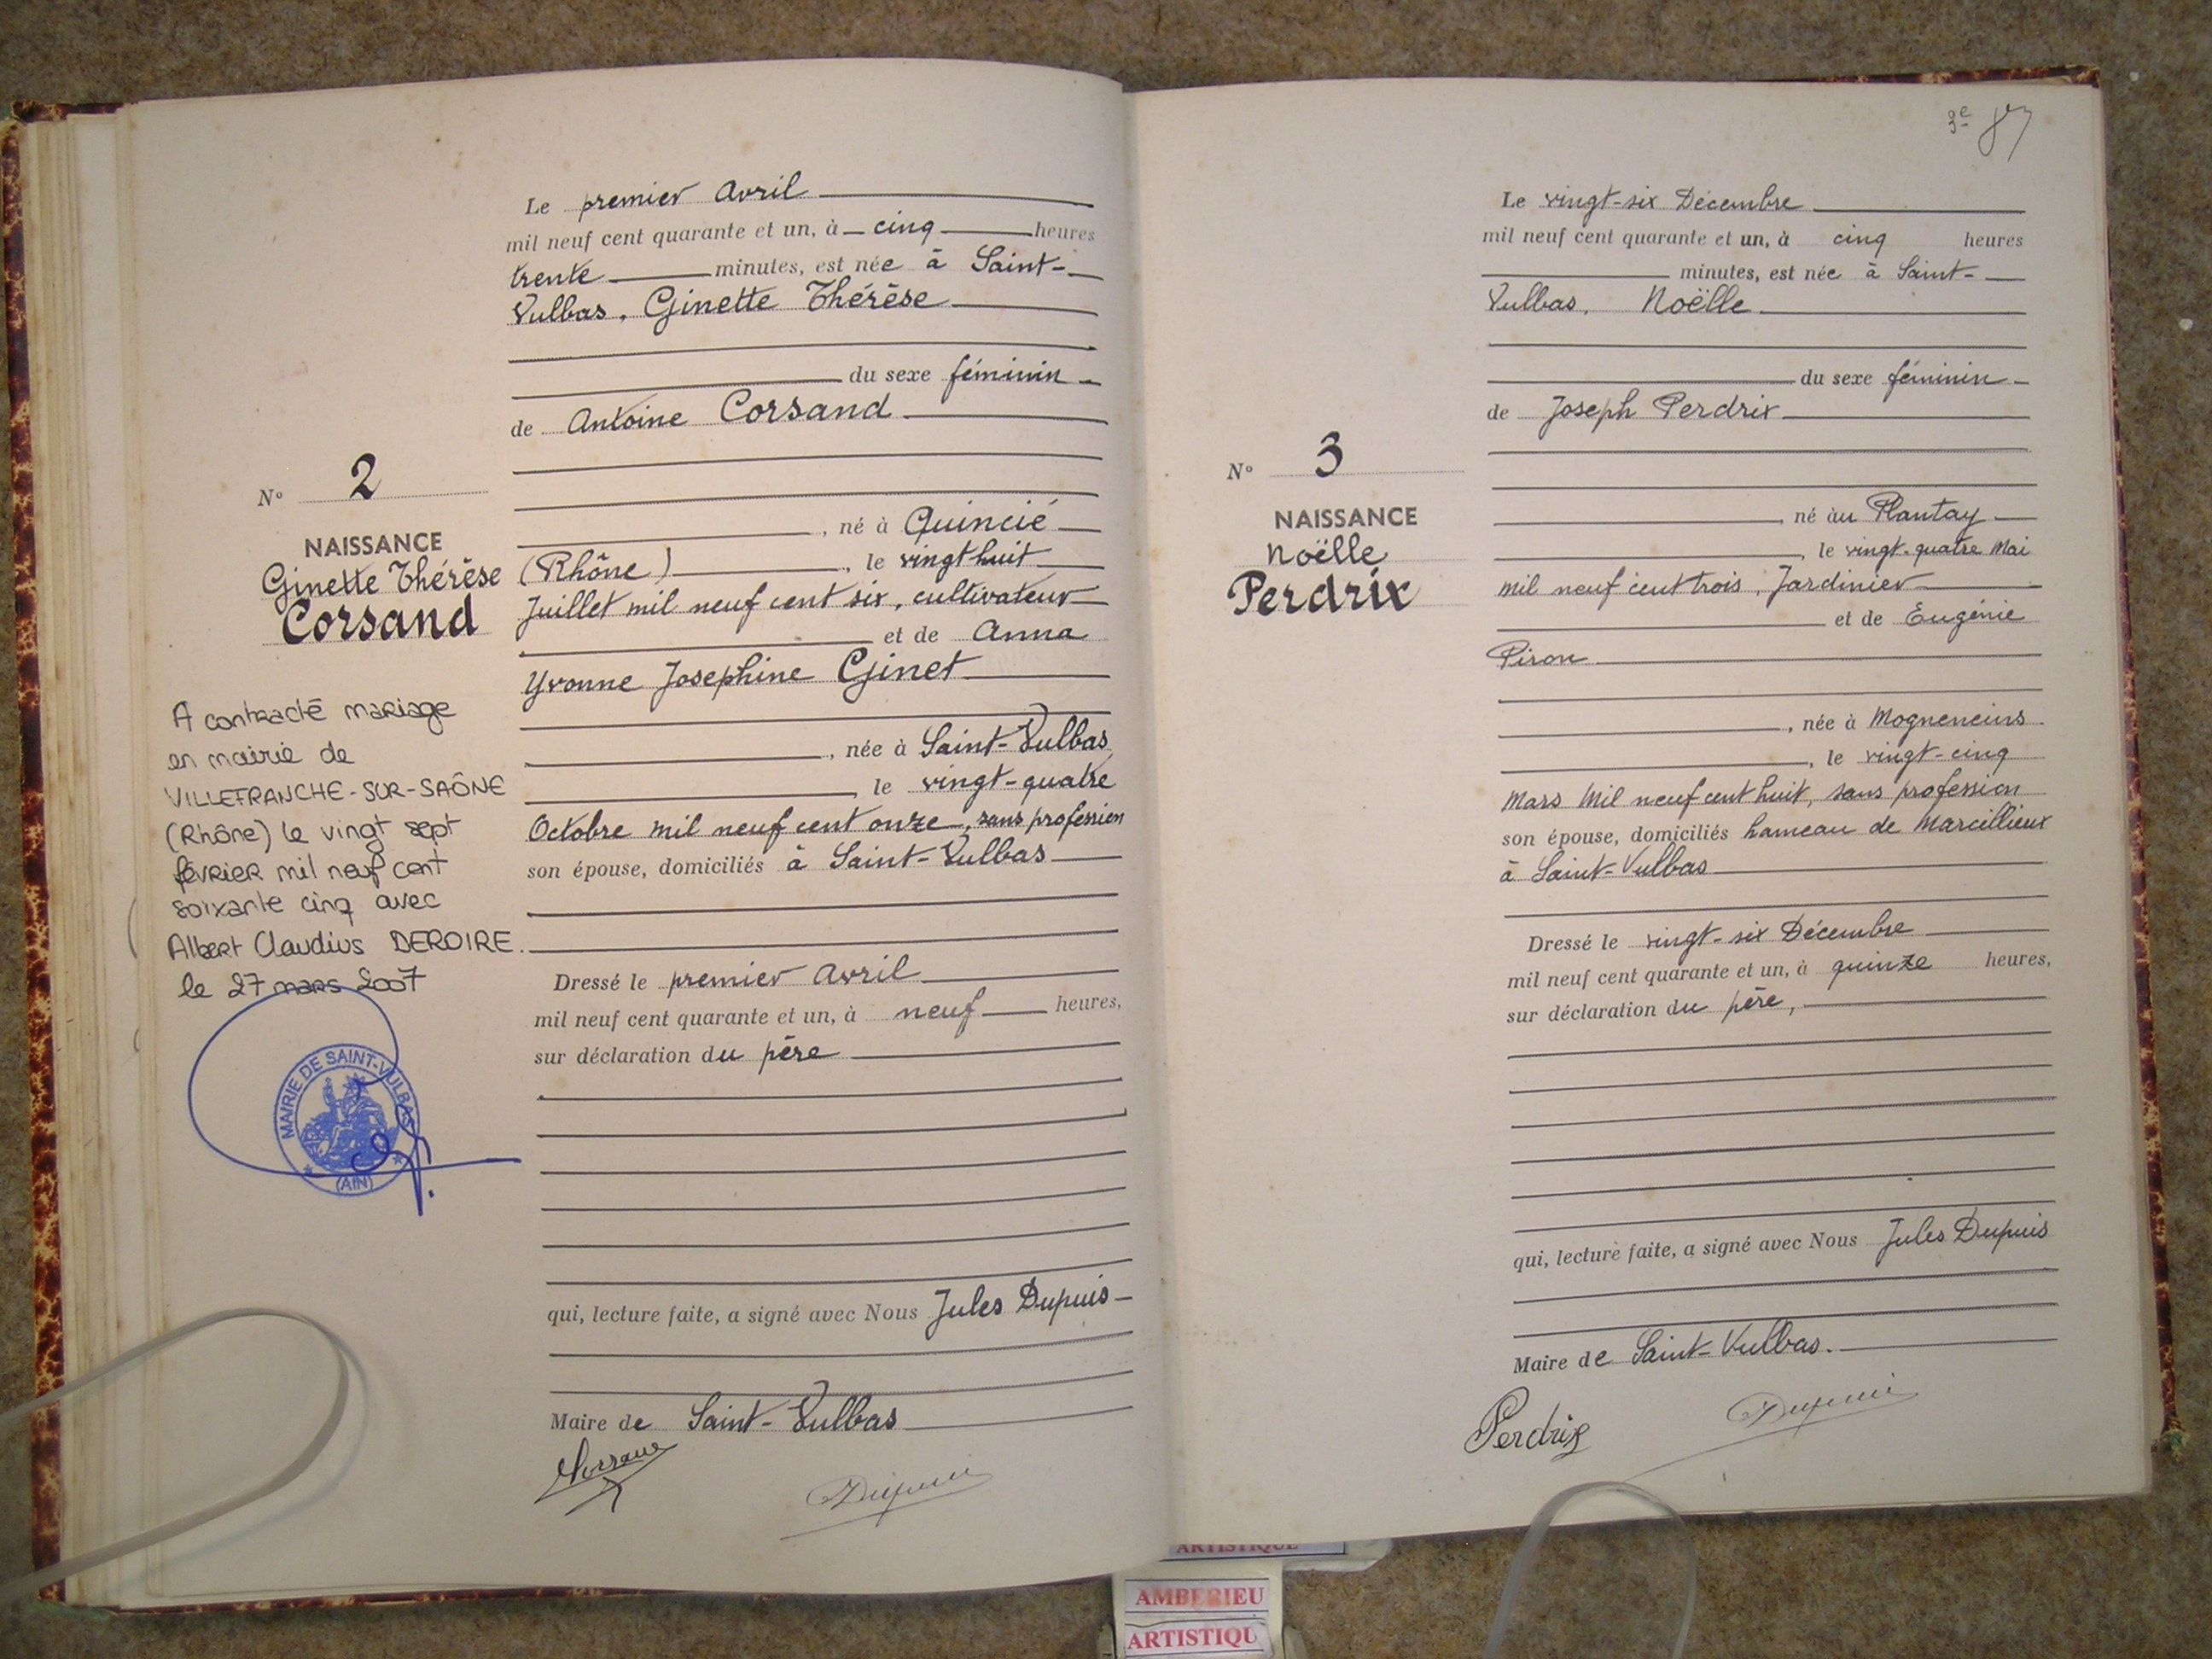 Le premier Avril
mil neuf cent quarante et un, à cinq heures
trente minutes, est née à Saint-
Vulbas, Ginette Thérèse
du sexe féminin
de Antoine Corsand
N° 2
NAISSANCE
Ginette Thérèse
Corsand
, né à Quincié
(Rhône), le vingt huit
Juillet mil neuf cent six, cultivateur
et de Anna
Yvonne Josephine Ginet
, née à Saint-Vulbas
le vingt-quatre
Octobre mil neuf cent onze, sans profession
son épouse, domiciliés à Saint-Vulbas
A contracté mariage
en mairie de
VILLEFRANCHE-SUR-SAÔNE
(Rhône) le vingt sept
février mil neuf cent
soixante cinq avec
Albert Claudius DEROIRE.
le 27 mars 2007
MAIRIE DE SAINT-VULBAS
(AIN)
Dressé le premier Avril
mil neuf cent quarante et un, à neuf heures,
sur déclaration du père
qui, lecture faite, a signé avec Nous Jules Dupuis
Maire de Saint-Vulbas
Dupuis
3e
Le vingt-six Décembre
mil neuf cent quarante et un, à cinq heures
minutes, est née à Saint-
Vulbas, Noëlle
du sexe féminin
de Joseph Perdrix
N° 3
NAISSANCE
Noëlle
Perdrix
, né au Plantay
, le vingt-quatre Mai
mil neuf cent trois, Jardinier
et de Eugénie
Piron
, née à Mogneneins
, le vingt-cinq
Mars Mil neuf cent huit, sans profession
son épouse, domiciliés hameau de Marcillieux
à Saint-Vulbas
Dressé le vingt-six Décembre
mil neuf cent quarante et un, à quinze heures,
sur déclaration du père,
qui, lecture faite, a signé avec Nous Jules Dupuis
Maire de Saint-Vulbas.
Perdrix
Dupuis
ARTISTIQUE
AMBERIEU
ARTISTIQU